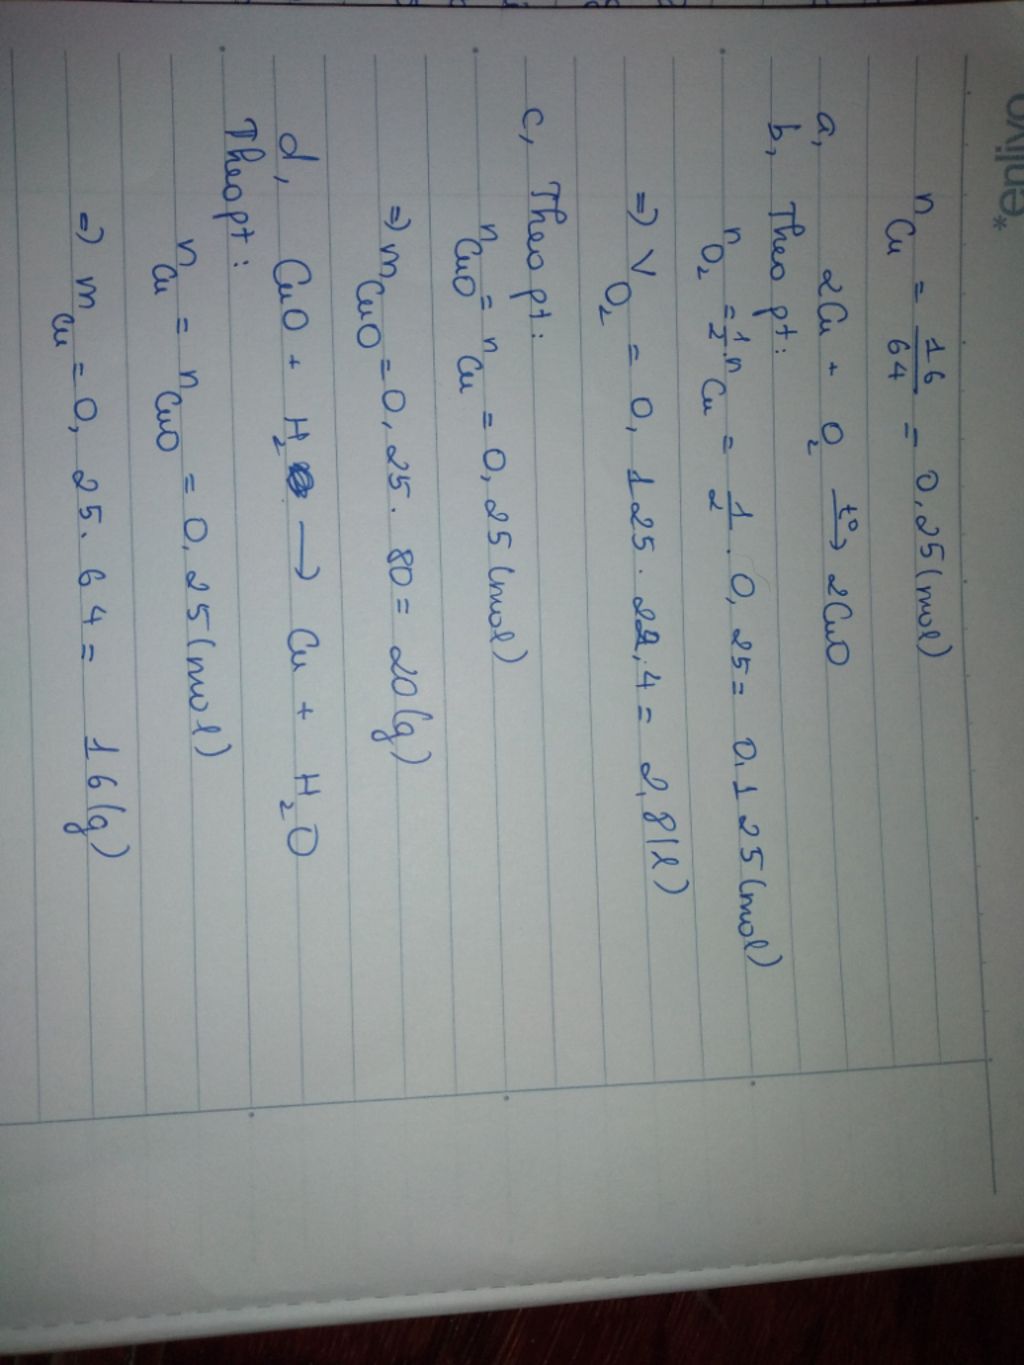 enlivo*
n Cu = 16/64 = 0,25 (mol)
a, 2Cu + O2 t°→ 2CuO
b, Theo pt:
n O2 = 1/2 . n Cu = 1/2 . 0,25 = 0,125 (mol)
=) V O2 = 0,125 . 22,4 = 2,8 (l)
c, Theo pt:
n CuO = n Cu = 0,25 (mol)
=) m CuO = 0,25 . 80 = 20 (g)
d, CuO + H2 → Cu + H2O
Theo pt:
n Cu = n CuO = 0,25 (mol)
=) m Cu = 0,25 . 64 = 16 (g)